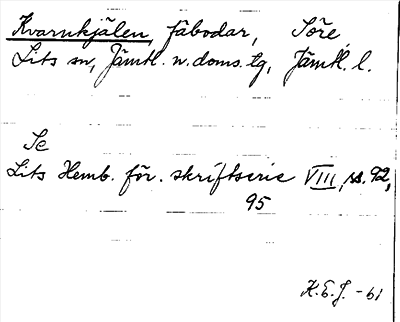 Kvarnkjälen, fäbodar, Söre
Lits sn, Jämtl. n. doms. tg, Jämtl. l.
Se
Lits Hemb. för. skriftserie VIII, ss. 92,
95
K.E.J. -61